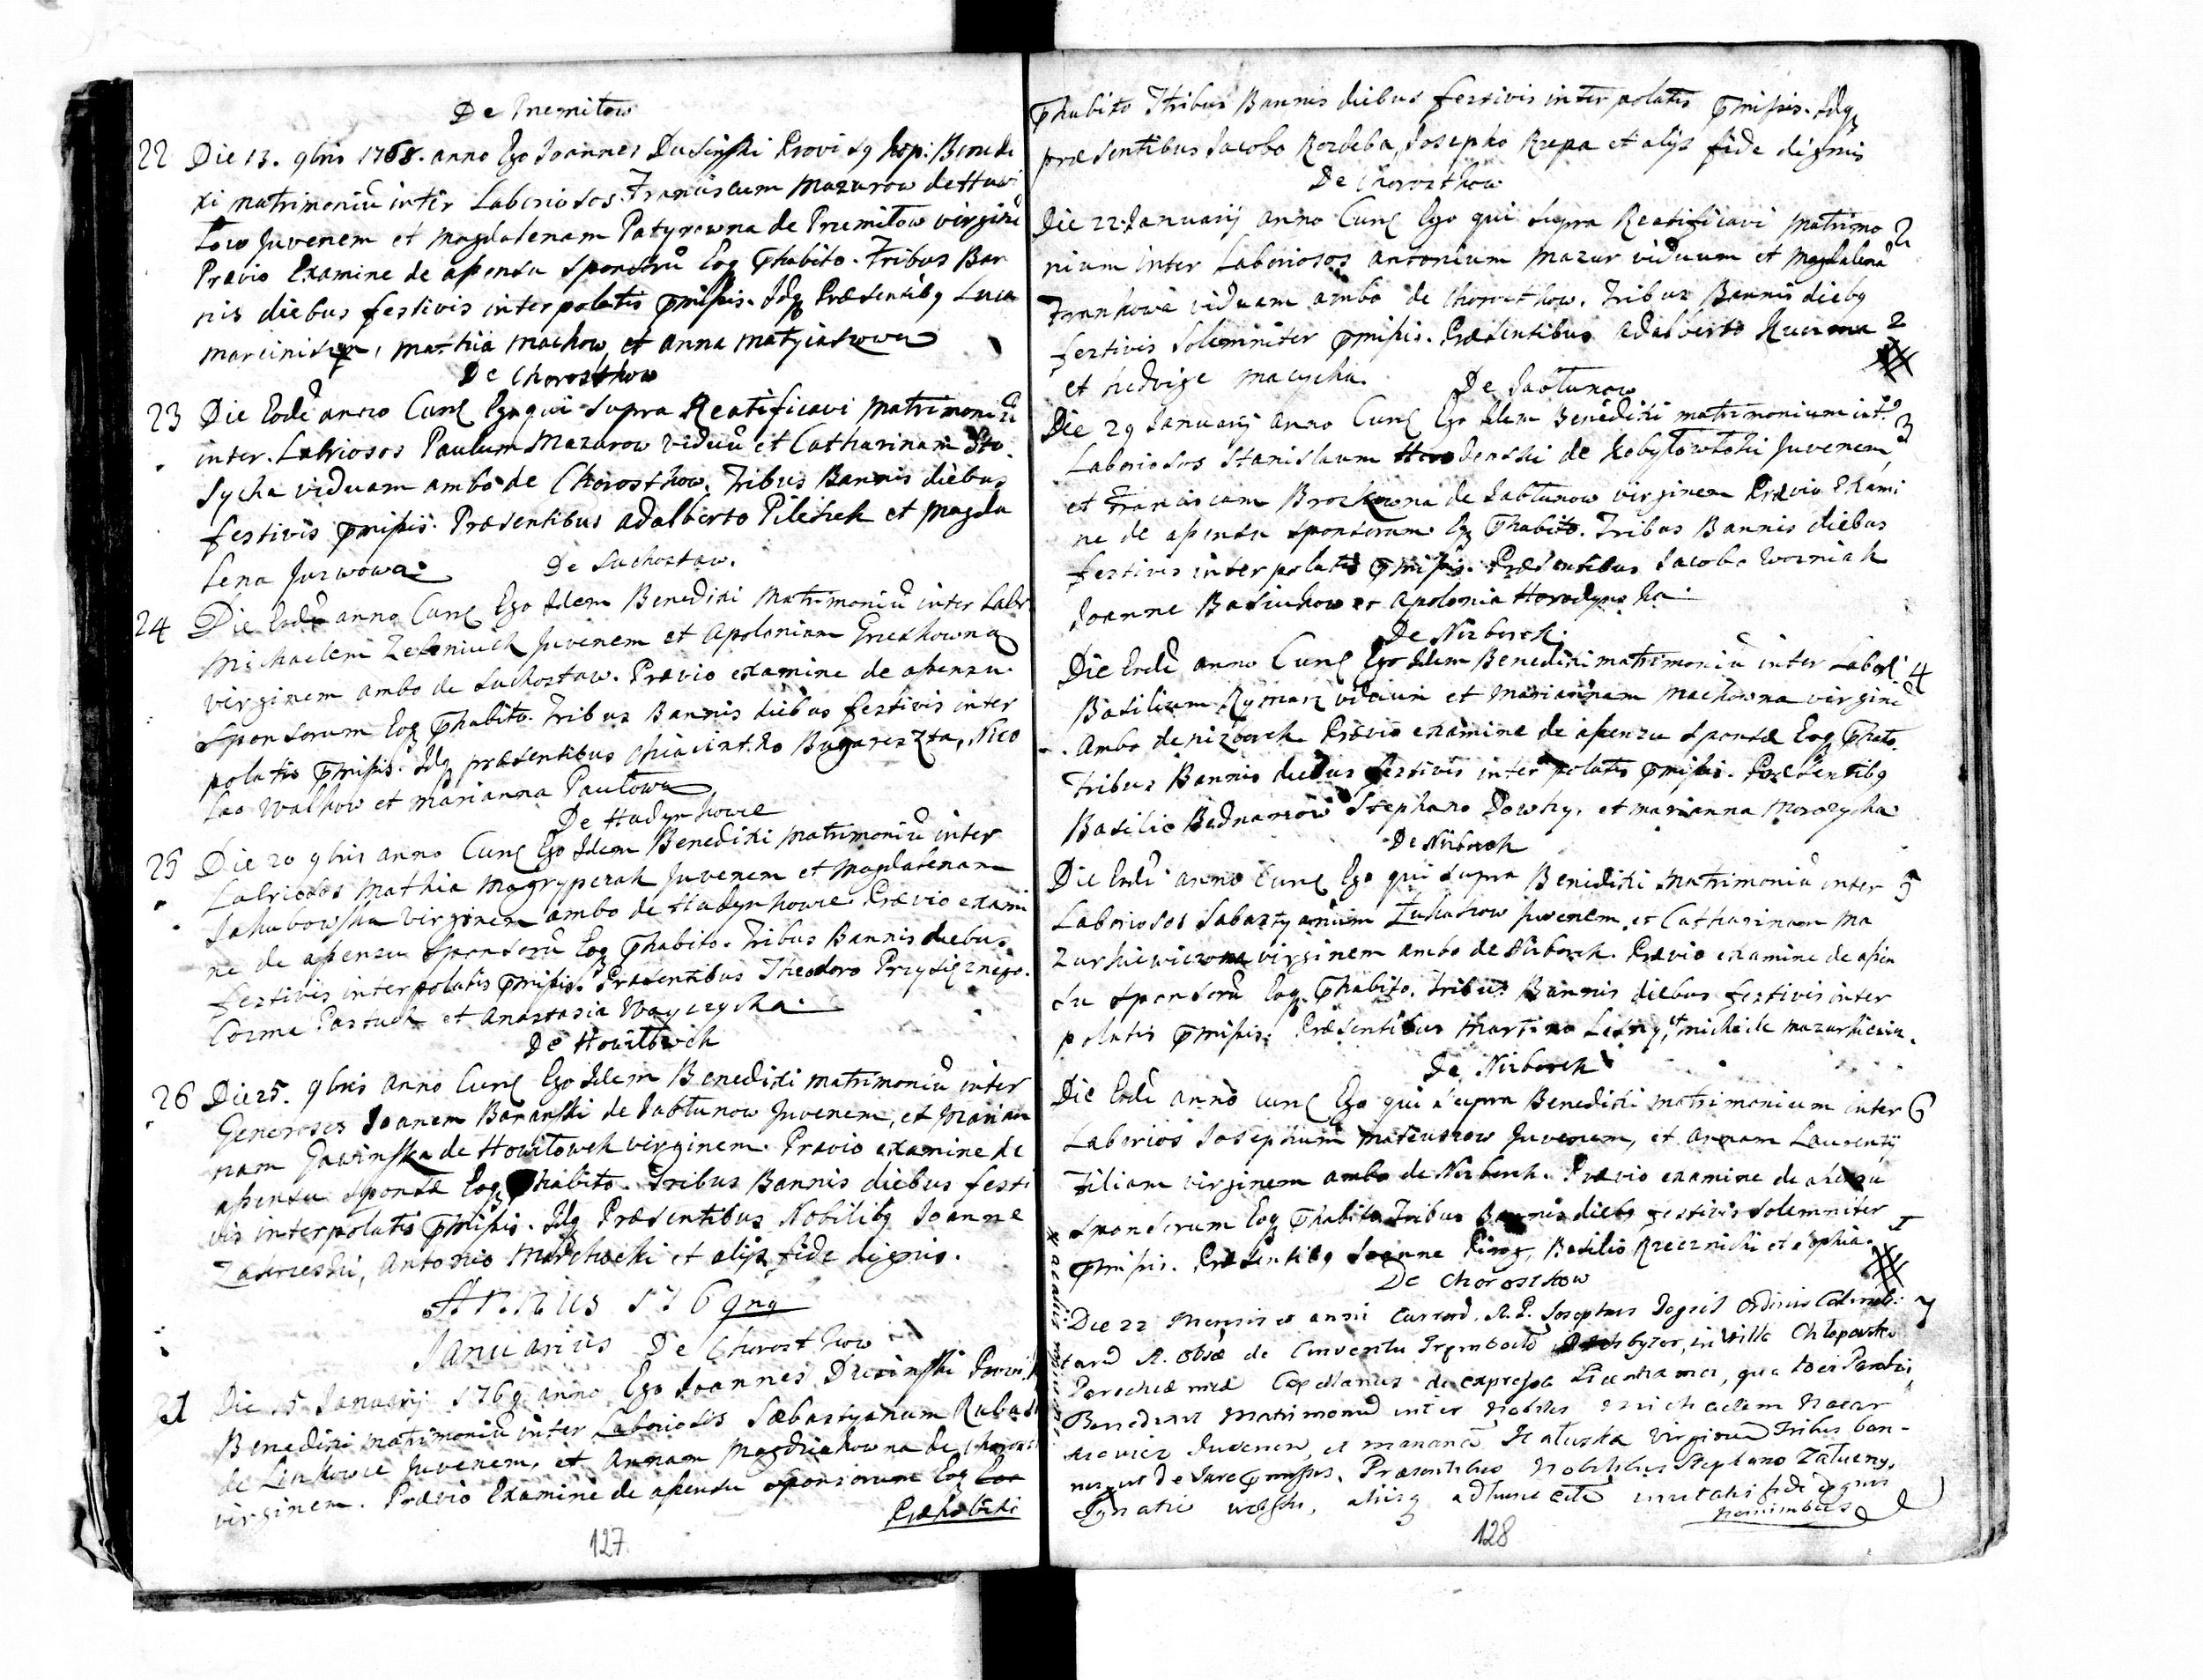 De Premitow
22 Die 13. 9bris 1768. anno Ego Joannes Dusinski Provisq Hosp: Benedi
xi matrimoniũ inter Laboriosos Franciscum Mazurow de Huwi
Low Juvenem et Magdalenam Patyrowna de Premitow virginẽ
Prævio Examine de assensu sponsorũ Eoq Phabito. Tribus Ban
nis diebus festivis interpolatis Pmissis. Idq Præsentibq Luca
, Mathia Machow, et Anna
De Chorosthow
23 Die Eodẽ anno Cur Ego qui supra Reatificavi Matrimoniũ
inter. Labriosos Paulum Mazurow viduũ et Catharinam Sto
sycha viduam ambo de Chorosthow. Tribus Bannis diebus
festivis Pmissis. Præsentibus Adalberto Pilishek et Magda
lena Juzwowa.
De Suchostaw.
24 Die Eodẽ anno Cur Ego Idem Benedixi Matrimoniũ inter Labr
Michaelem Zeleniuck Juvenem et Apoloniam
virginem ambo de Suchostaw. Prævio examine de assensu
Sponsorum Eoq Phabito. Tribus Bannis diebus festivis inter
polatis Pmissis. Idq præsentibus Nico
lao Walkow et Marianna Pautowa
De Hadynkowce
25 Die 20 9bris anno Cur Ego Idem Benedixi Matrimoniũ inter
Labriosos Mathia Magryperak Juvenem et Magdalenam
Jakubowska virginem ambo de Hadynkowce. Prævio exami
ne de assensu Sponsorũ Eoq Phabito. Tribus Bannis diebus
festivis interpolatis Pmissis. Præsentibus Theodoro Przysięznego.
Cozma Pastuch et Anastasia Wayczycha.
De Howitowick
26 Die 25. 9bris anno Cur Ego Idem Benedixi matrimoniũ inter
Generosos Joanem Baranski de Jabłunow Juvenem, et Marian
nam de Howitowek virginem. Prævio examine de
assensu sponsæ Eoq Phabito. Tribus Bannis diebus festi
vis interpolatis Pmissis. Idq Præsentibus Nobilibq Joanne
Zakrzeski, Antonio Marchocki et alijs fide dignis.
Annus 1769nq
Januarius De Chorosthow
1 Die 15 Januarij 1769 anno Ego Joannes Dusinski Provis
Benedixi matrimoniũ inter Laboriosos Sæbastyanum
de Linkowce Juvenem, et Annam Magdziakowna de Choros
virginem. Prævio Examine de assensu sponsorum Eoq
Præhabiti
127
Phabito Tribus Bannis diebus festivis interpolatis Pmissis. Idq
præsentibus Jacobo Kozdeba, Josepho Rzepa et alijs fide dignis
De Chorosthow
Die 22 Januarij anno Cur Ego qui supra Reatificavi Matrimo 2
nium inter Laboriosos Antonium Mazur viduum et Magdalenã
Frankowa viduam ambo de Chorosthow. Tribus Bannis diebq
festivis solemniter Pmissis. Præsentibus Adalberto Kuzma 2
et Hedvige Macycha.
De Jabłunow
Die 29 Januarij anno Cur Ego Idem Benedixi matrimonium int. 3
Laboriosos Stanislaum de Kobyłowłoki Juvenem,
et Franciscam Brozkowna de Jabłunow virginem Prævio Exami
ne de assensu sponsorum Eoq Phabito. Tribus Bannis diebus
festivis interpolatis Pmissis. Præsentibus Jacobo Wozniak
Joanne Basiukow et Apolonia Horodynska.
De Nizborck.
Die Eodẽ anno Cur Ego Idem Benedixi matrimoniũ inter Labori 4
Basilium Rymarz viduum et Mariannam Machowna virginẽ
Ambo de nizborck. Prævio examine de assensu sponsæ Eoq Phato.
Tribus Bannis diebus festivis interpolatis Pmissis. Præsentibq
Basilio Bednarzow Stephano Dowhy, et Marianna Morozycha
De Nizborck
Die Eodẽ anno Cur Ego qui supra Benedixi Matrimoniũ inter 5
Laboriosos Sabastyanum Łukakow Juvenem et Catharinam Ma
zurkiewiczowna virginem ambo de Nizborck. Prævio examine de assen
su sponsorũ Eoq Phabito. Tribus Bannis diebus festivis inter
polatis Pmissis. Præsentibus Martino et michaele mazurkiewicz.
De Nizborck
Die Eodẽ anno Cur Ego qui supra Benedixi matrimonium inter 6
Laborios Josephum Mateuszow Juvenem, et Annam Laurentij
Filiam virginem ambo de Nizborck. Prævio examine de assensu
Sponsorum Eoq Phabito Tribus Bannis diebq festivis solemniter
Pmissis. Præsentibq Joanne Pirog, Basilio Rzecznicki et Sophia.
De Chorosthow
Die 22 Mensis et anni Currend. A. P. Josephus Ordinis 7
de Conventu in villa
Parochiæ meæ Capellanus de expressa Licentia mea, qua loci Parochi,
Benedixit Matrimoniũ inter Nobiles Michaelem
Juvenem, et Mariannã Hałuska virginem Tribus ban-
nis, ut de Jure Pmissis. Præsentibus Nobilibus Stephano
Ignatio alijsq ad hunc actũ invitatis fide dignis
hominibus
128